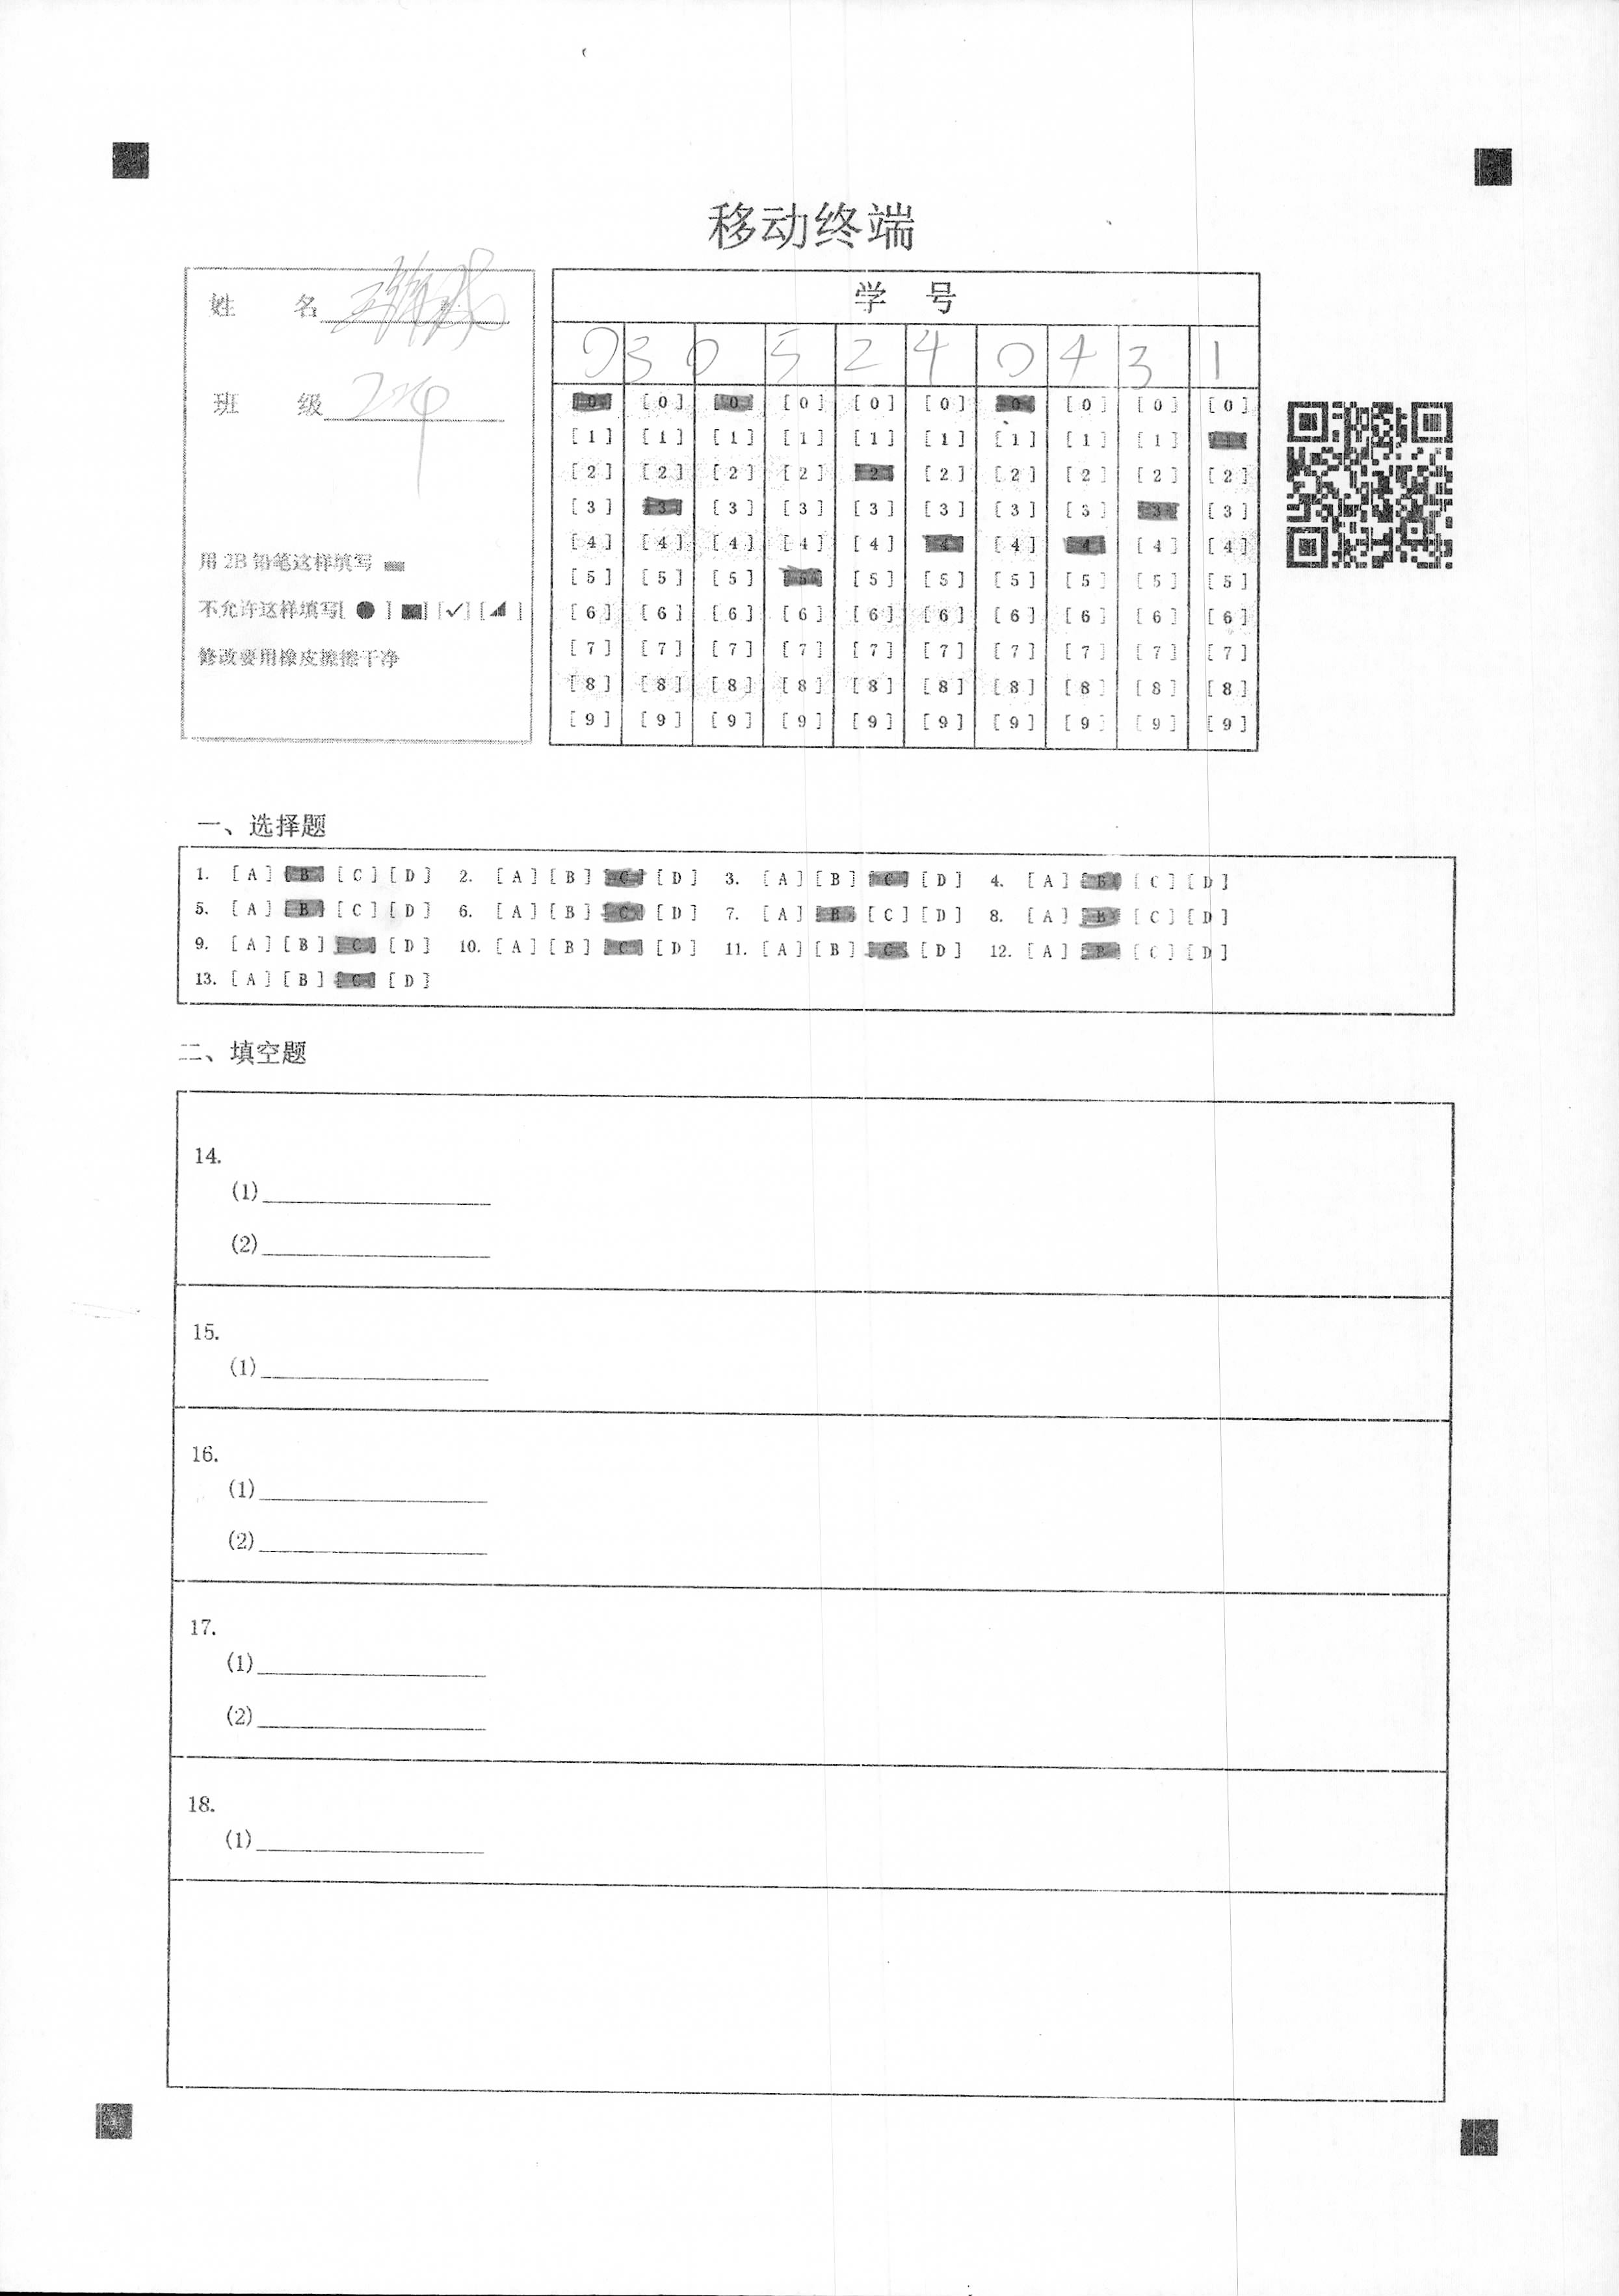 移动终端
姓 名
班 级
用 2B 铅笔这样填写
不允许这样填写[ ● ] [■] [✓] [◢ ]
修改要用橡皮擦擦干净
学 号
0 3 0 5 2 4 0 4 3 1
[0] [0] [0] [0] [0] [0] [0] [0] [0] [0]
[1] [1] [1] [1] [1] [1] [1] [1] [1] [1]
[2] [2] [2] [2] [2] [2] [2] [2] [2] [2]
[3] [3] [3] [3] [3] [3] [3] [3] [3] [3]
[4] [4] [4] [4] [4] [4] [4] [4] [4] [4]
[5] [5] [5] [5] [5] [5] [5] [5] [5] [5]
[6] [6] [6] [6] [6] [6] [6] [6] [6] [6]
[7] [7] [7] [7] [7] [7] [7] [7] [7] [7]
[8] [8] [8] [8] [8] [8] [8] [8] [8] [8]
[9] [9] [9] [9] [9] [9] [9] [9] [9] [9]
一、选择题
1. [A] [B] [C] [D] 2. [A] [B] [C] [D] 3. [A] [B] [C] [D] 4. [A] [B] [C] [D]
5. [A] [B] [C] [D] 6. [A] [B] [C] [D] 7. [A] [B] [C] [D] 8. [A] [B] [C] [D]
9. [A] [B] [C] [D] 10. [A] [B] [C] [D] 11. [A] [B] [C] [D] 12. [A] [B] [C] [D]
13. [A] [B] [C] [D]
二、填空题
14.
(1)
(2)
15.
(1)
16.
(1)
(2)
17.
(1)
(2)
18.
(1)